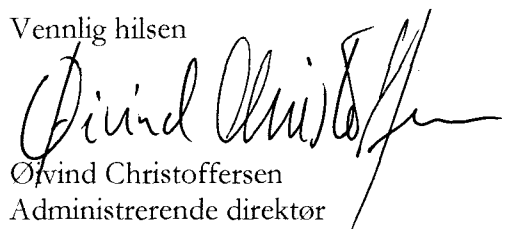 Vennlig hilsen
Øivind Christoffersen
Øivind Christoffersen
Administrerende direktør